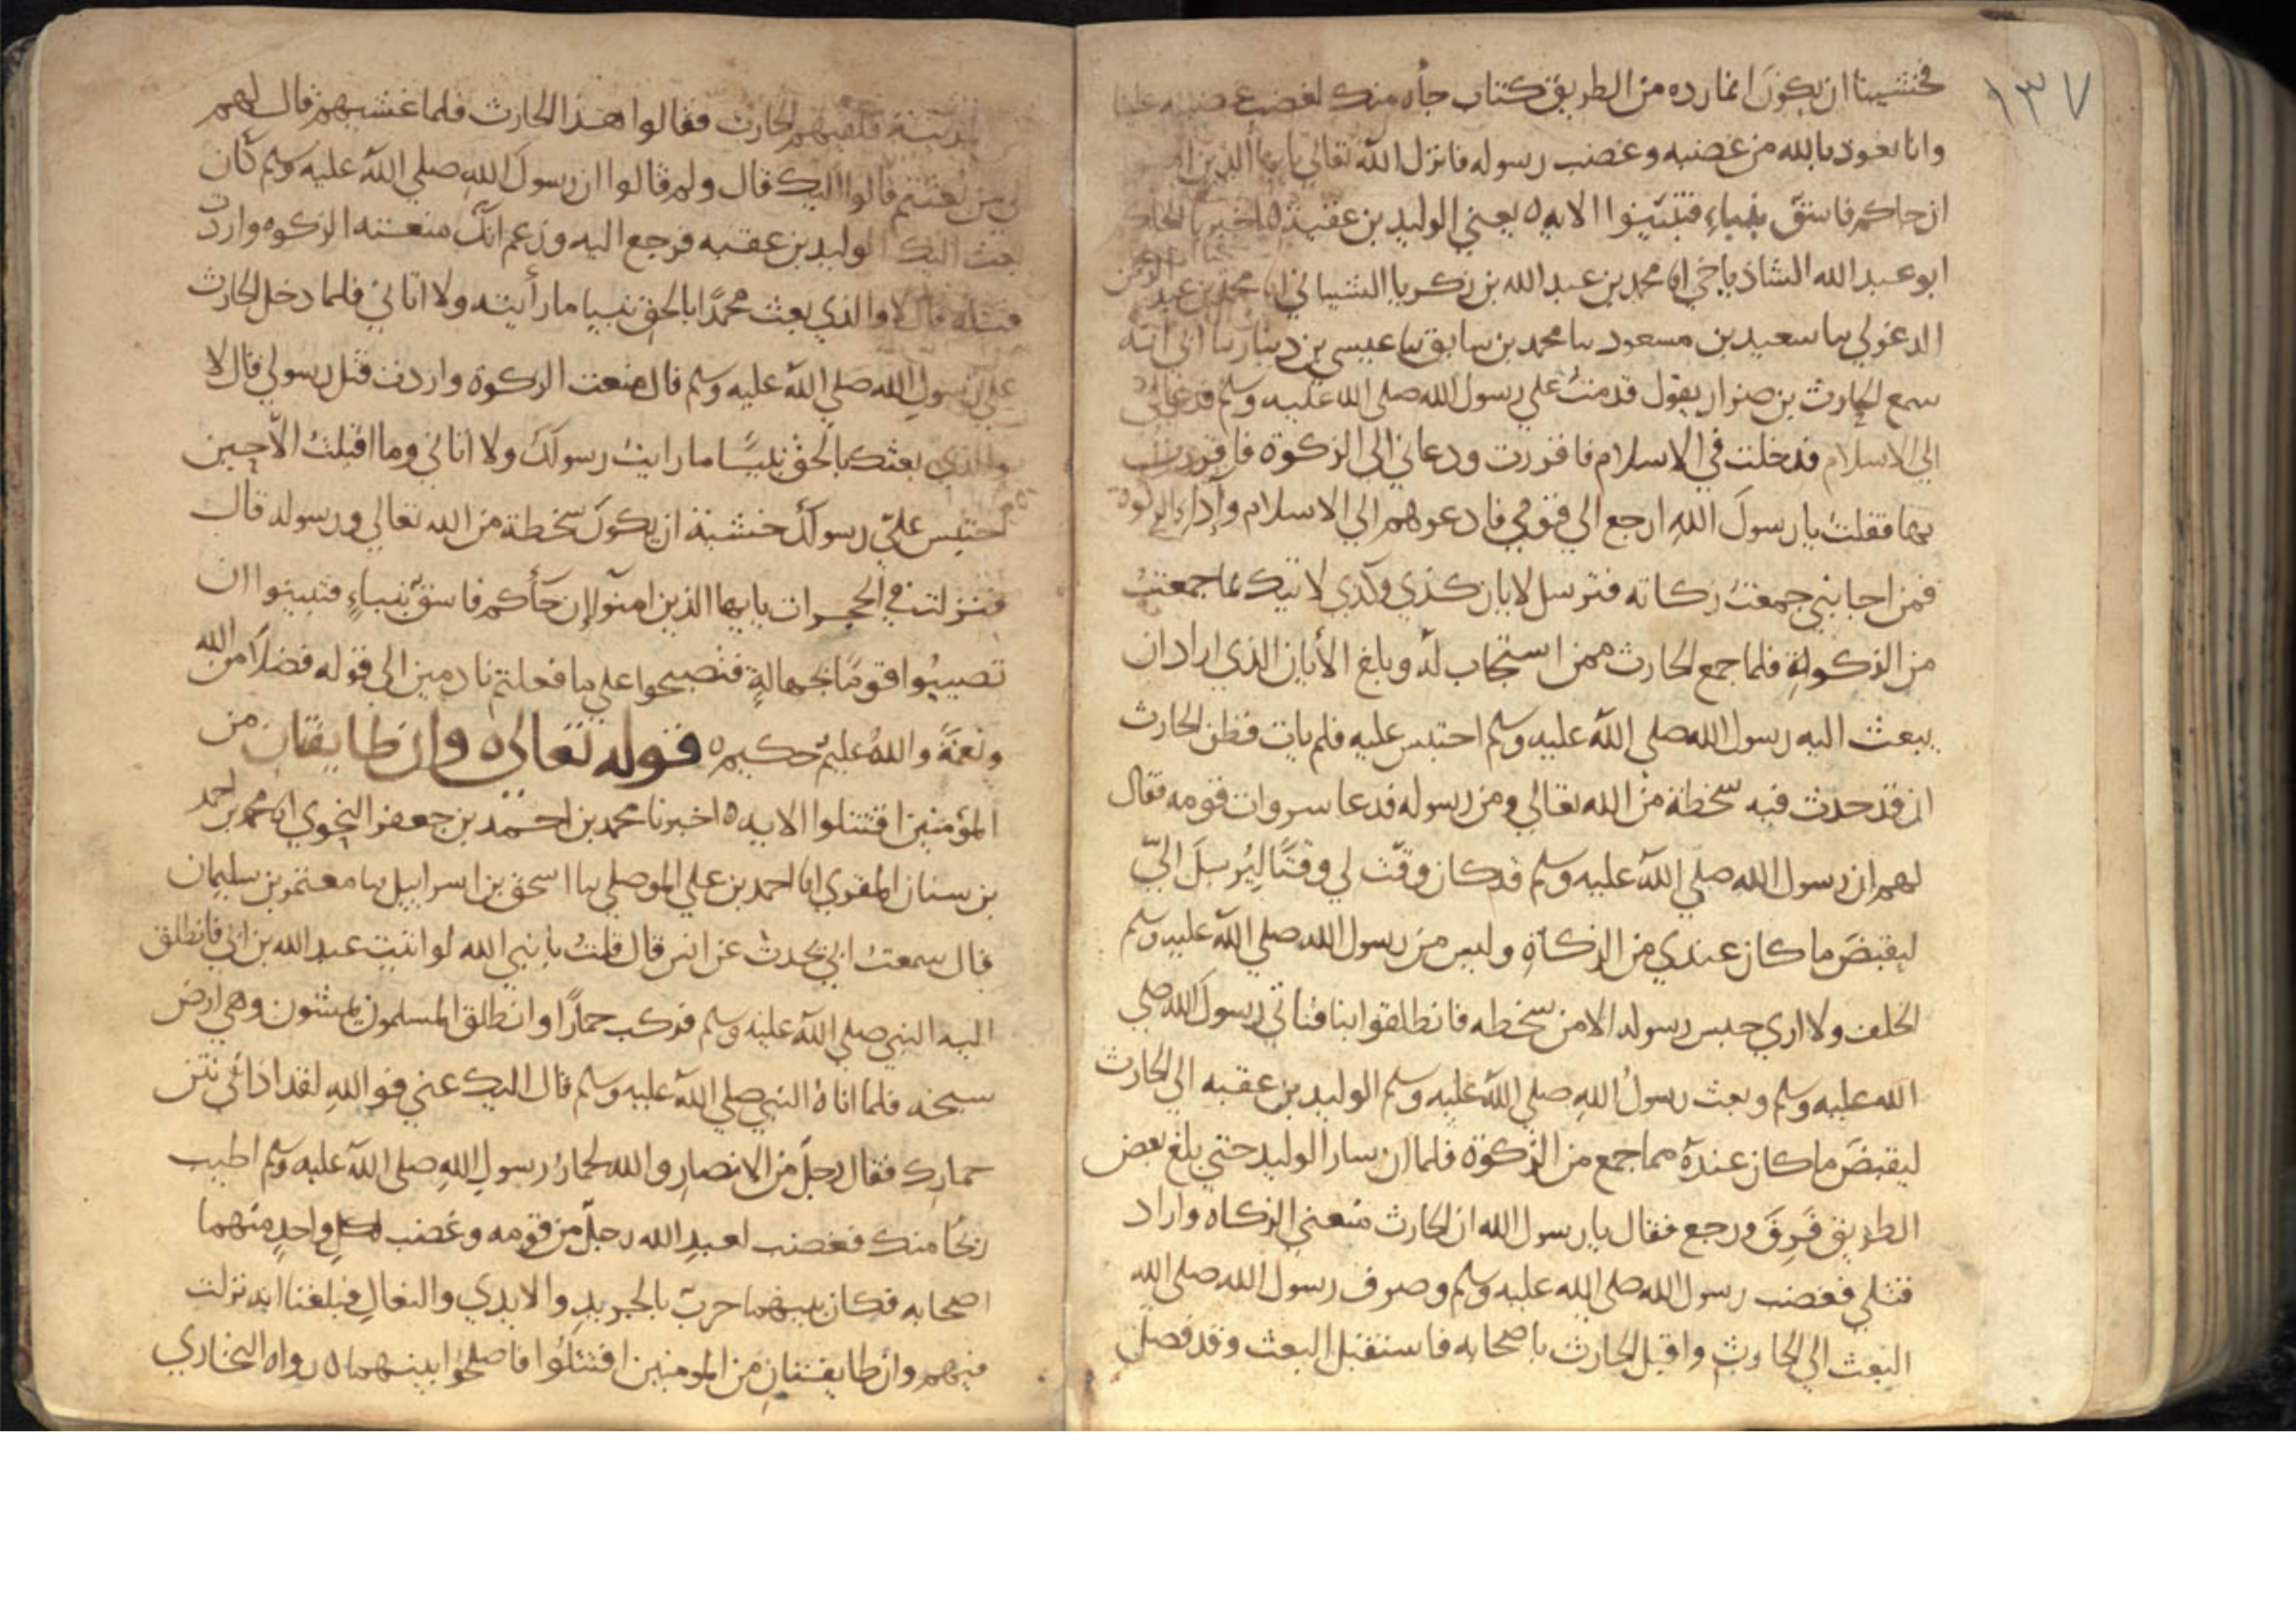 ١٣٧
فخشينا ان يكونَ انما رده من الطريق كتاب جاه منك لغضب غضبته علينا
وانا نعوذ بالله من غضبه وغضب رسوله فانزل الله تعالى يا يها الذين ا
ان جاكم فاسقٌ بنباءٍ فتبيّنوا الايه ٥ يعني الوليد بن عقبة ٥ اخبرنا الحاكم
ابو عبد الله الشاذياخي انا محمد بن عبد الله بن زكريا الشيباني انا محمد بن عبد الرحمن
الدغولي سا سعيد بن مسعود سا محمد بن سابق سا عيسى بن دينار سا ابي انه
سمع الحارث بن ضرار يقول قدمتُ علي رسول الله صلى الله عليه وسلم فدعاني
الي الاسلام فدخلت في الاسلام فاقررت ودعاني الى الزكوة فاقررت
بها فقلتُ يا رسولَ اللهِ ارجع الي قومي فادعوهم الي الاسلام وادا الزكوة
فمن اجابني جمعتُ زكاته فترسل لابان كذي وكذي لاتيك بما جمعتُ
من الزكوة فلما جمع الحارث ممن استجاب له وبلغ الأبان الذي اراد ان
يبعث اليه رسول الله صلي الله عليه وسلم احتبس عليه فلم يات فظن الحارث
ان قد حدث فيه سخطة من الله تعالي ومن رسوله فدعا سروات قومه فقال
لهم ان رسول الله صلي الله عليه وسلم قد كان وقّت لي وقتًا ليُرسلَ اليّ
ليقبضَ ما كان عندي من الزكاةِ وليس من رسول الله صلي الله عليه وسلم
الخلف ولا اري حبس رسوله الا من سخطه فانطلقوا بنا فناتي رسولَ الله صلي
الله عليه وسلم وبعث رسولُ اللهِ صلي الله عليه وسلم الوليد بن عقبه الي الحارث
ليقبضَ ما كان عنده مما جمع من الزكوة فلما ان سار الوليد حتي بلغ بعض
الطريق فَرِقَ ورجع فقال يا رسول الله ان الحارث منعني الزكاه واراد
قتلي فغضب رسول الله صلى الله عليه وسلم وصرف رسول الله صلى الله
البعث الي الحارث واقبل الحارث باصحابه فاستقبل البعث وقد فصل
المدينة فلقيهم الحارث فقالوا هذا الحارث فلما غشيهم قال لهم
الي من بعثتم قالوا اليك قال ولم قالوا ان رسول اللهِ صلي الله عليه وسلم كان
بعث اليك الوليد بن عقبه فرجع اليه وزعم انك منعته الزكوه واردت
قتله قال لا والذي بعث محمدًا بالحق نبيا ما رأيته ولا اتاني فلما دخل الحارث
علي رسولِ الله صلي الله عليه وسلم قال منعت الزكوة واردت قتل رسولي قال لا
والذي بعثك بالحق نبيًّا ما رايتُ رسولَكَ ولا اتاني وما اقبلتُ الّا حين
احتبس عليّ رسولُك خشية ان يكونَ سخطة من الله تعالي ورسوله قال
فنزلت في الحجرات يا يها الذين امنوا إن جأكم فاسقٌ بنباءٍ فتبينوا ان
تصيبُوا قومًا بجهالةٍ فتصبحوا علي ما فعلتم نادمين الي قوله فضلًا من الله
ونعمةً واللهُ عليمٌ حكيم ٥ قوله تعالى ٥ وان طايفتان من
المؤمنين اقتتلوا الايه ٥ اخبرنا محمد بن احمد بن جعفر النحوي انا محمد بن احمد
بن سنان المقري انا احمد بن علي الموصلي سا اسحق بن اسراييل سا معتمر بن سليمان
قال سمعتُ ابي يحدث عن انس قال قلتُ يا نبي الله لو اتيت عبد الله بن ابي فانطلق
اليه النبي صلي الله عليه وسلم فركب حمارًا وانطلق المسلمون يمشون وهي ارض
سبخه فلما اتاهُ النبي صلي الله عليه وسلم قال اليك عني فو اللهِ لقد اذاني نتن
حمارك فقال رجلٌ من الانصارِ والله لحمارُ رسولِ اللهِ صلى الله عليه وسلم اطيب
ريحًا منك فغضب لعبدِ الله رجلٌ من قومه وغضب لكلِ واحدٍ منهما
اصحابه فكان بينهما حربٌ بالجريدِ والايدي والنعالِ فبلغنا انه نزلت
فيهم وان طايفتانِ من المومنين اقتتلُوا فاصلحُوا بينهما ٥ رواه البخاري